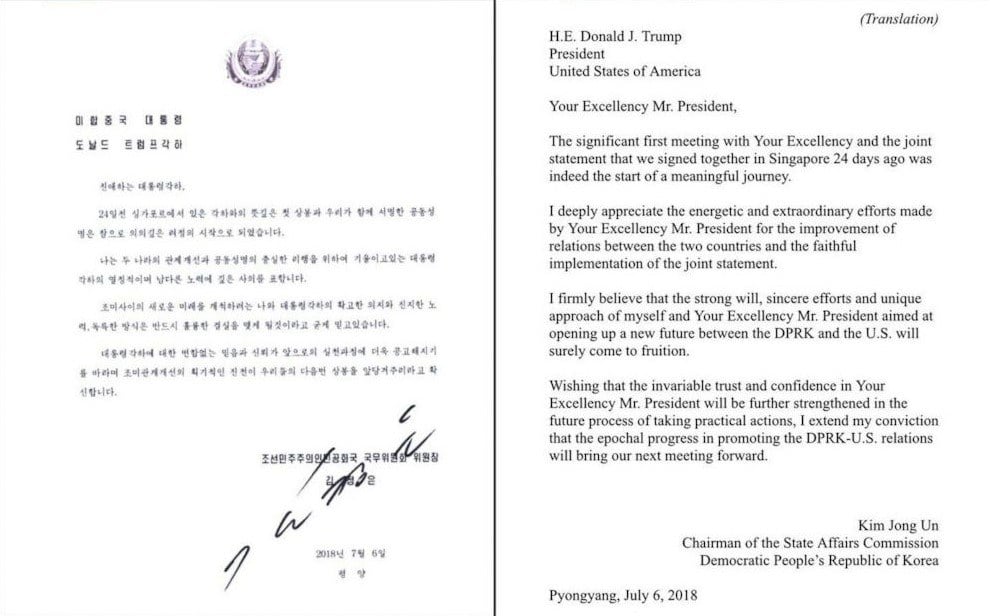 미합중국 대통령
도날드 트럼프각하
친애하는 대통령각하,
24일전 싱가포르에서 있은 각하와의 뜻깊은 첫 상봉과 우리가 함께 서명한 공동성
명은 참으로 의의깊은 려정의 시작으로 되였습니다.
나는 두 나라의 관계개선과 공동성명의 충실한 리행을 위하여 기울이고있는 대통령
각하의 열정적이며 남다른 노력에 깊은 사의를 표합니다.
조미사이의 새로운 미래를 개척하려는 나와 대통령각하의 확고한 의지와 진지한 노
력, 독특한 방식은 반드시 훌륭한 결실을 맺게 될것이라고 굳게 믿고있습니다.
대통령각하에 대한 변함없는 믿음과 신뢰가 앞으로의 실천과정에 더욱 공고해지기
를 바라며 조미관계개선의 획기적인 진전이 우리들의 다음번 상봉을 앞당겨주리라고 확
신합니다.
조선민주주의인민공화국 국무위원회 위원장
김정은
2018년 7월 6일
평 양
(Translation)
H.E. Donald J. Trump
President
United States of America
Your Excellency Mr. President,
The significant first meeting with Your Excellency and the joint
statement that we signed together in Singapore 24 days ago was
indeed the start of a meaningful journey.
I deeply appreciate the energetic and extraordinary efforts made
by Your Excellency Mr. President for the improvement of
relations between the two countries and the faithful
implementation of the joint statement.
I firmly believe that the strong will, sincere efforts and unique
approach of myself and Your Excellency Mr. President aimed at
opening up a new future between the DPRK and the U.S. will
surely come to fruition.
Wishing that the invariable trust and confidence in Your
Excellency Mr. President will be further strengthened in the
future process of taking practical actions, I extend my conviction
that the epochal progress in promoting the DPRK-U.S. relations
will bring our next meeting forward.
Kim Jong Un
Chairman of the State Affairs Commission
Democratic People's Republic of Korea
Pyongyang, July 6, 2018